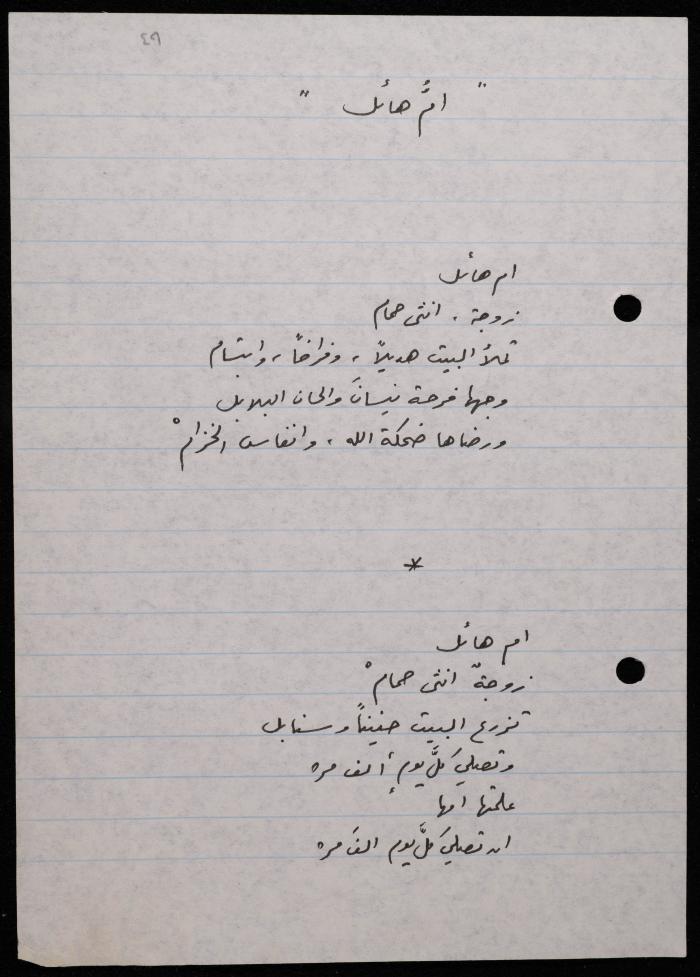 ٤٩
" امُّ هائل "
ام هائل
زوجة ، انثى حمام
تملأ البيت هديلاً ، وفراخاً ، وابتسام
وجهها فرحة نيسانَ والحان البلابل
ورضاها ضحكة الله ، وانفاس الخزامْ
*
ام هائل
زوجةٌ انثى حمامْ
تزرع البيت حنيناً وسنابل
وتصلي كلَّ يومٍ ألف مره
علمتها امها
ان تصليَ كلَّ يوم الفَ مره